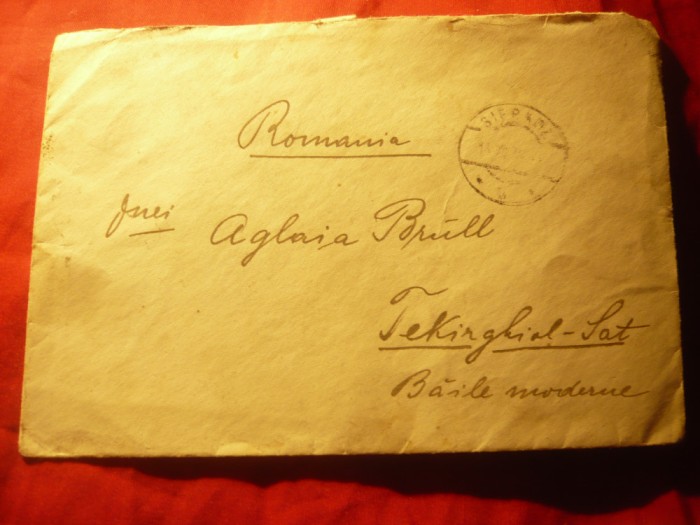 Romania
Dnei
Aglaia Brüll
Tekirghiol-Sat
Băile moderne